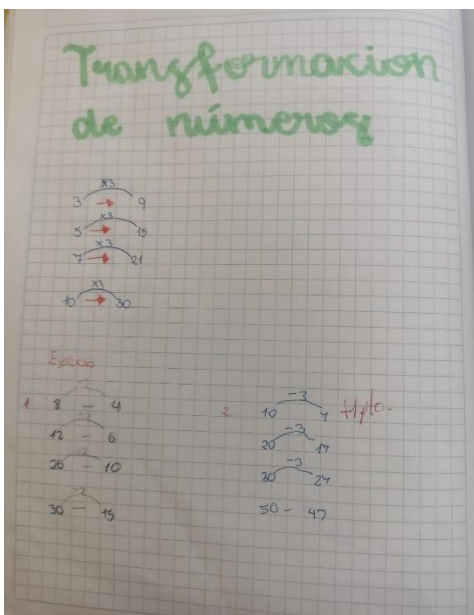 Transformacion
de números
x3
3 → 9
x3
5 → 15
x3
7 → 21
x3
10 → 30
1. 8 - 4
12 - 6
-2
20 - 10
-2
30 - 15
2. -3
10 7
-3
20 17
-3
30 27
50 - 47